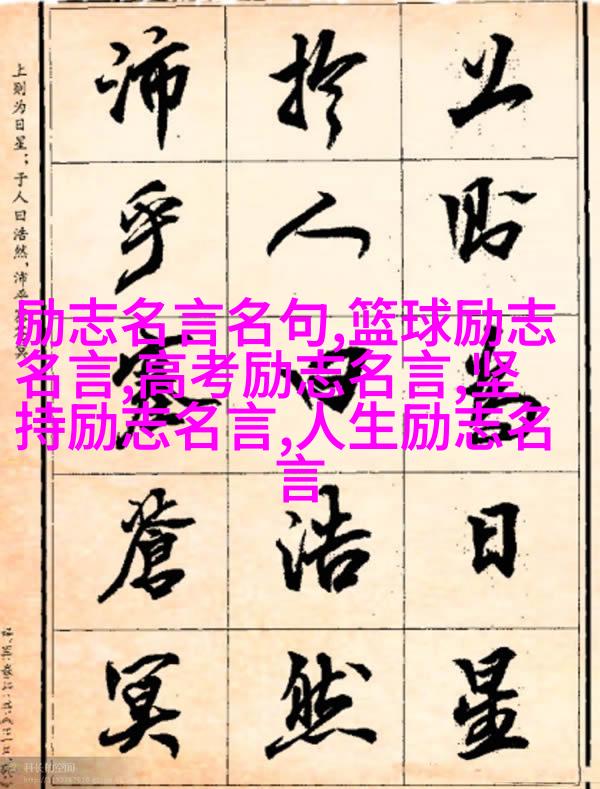 上则为日星
於人曰浩然
沛乎塞蒼冥
上则为日星；于人曰浩然，沛乎
冥
励志名言名句,篮球励志
名言,高考励志名言,坚
持励志名言,人生励志名
言
科长的空间